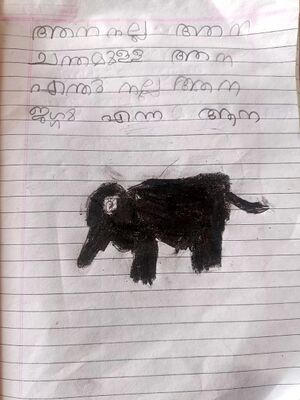 ആന നല്ല ആന
ചന്തമുള്ള ആന
നല്ല ആന
ജഗ്ഗു എന്ന ആന